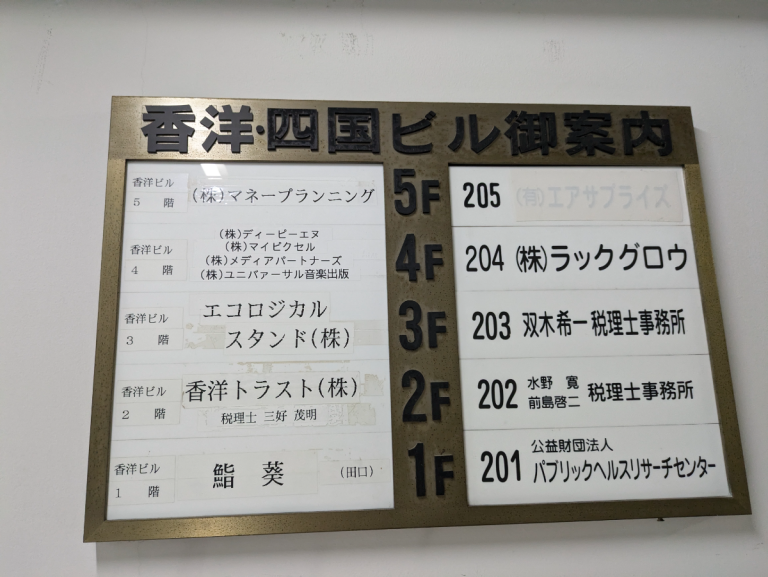 香洋・四国ビル御案内
香洋ビル
5 階
(株)マネープランニング
香洋ビル
4 階
(株)ディーピーエヌ
(株)マイピクセル
(株)メディアパートナーズ
(株)ユニバァーサル音楽出版
香洋ビル
3 階
エコロジカル
スタンド(株)
香洋ビル
2 階
香洋トラスト(株)
税理士 三好 茂明
香洋ビル
1 階
鮨 葵 (田口)
5F
4F
3F
2F
1F
205 (有)エアサプライズ
204 (株)ラックグロウ
203 双木希一税理士事務所
202 水野 寛
前島啓二 税理士事務所
201 公益財団法人
パブリックヘルスリサーチセンター